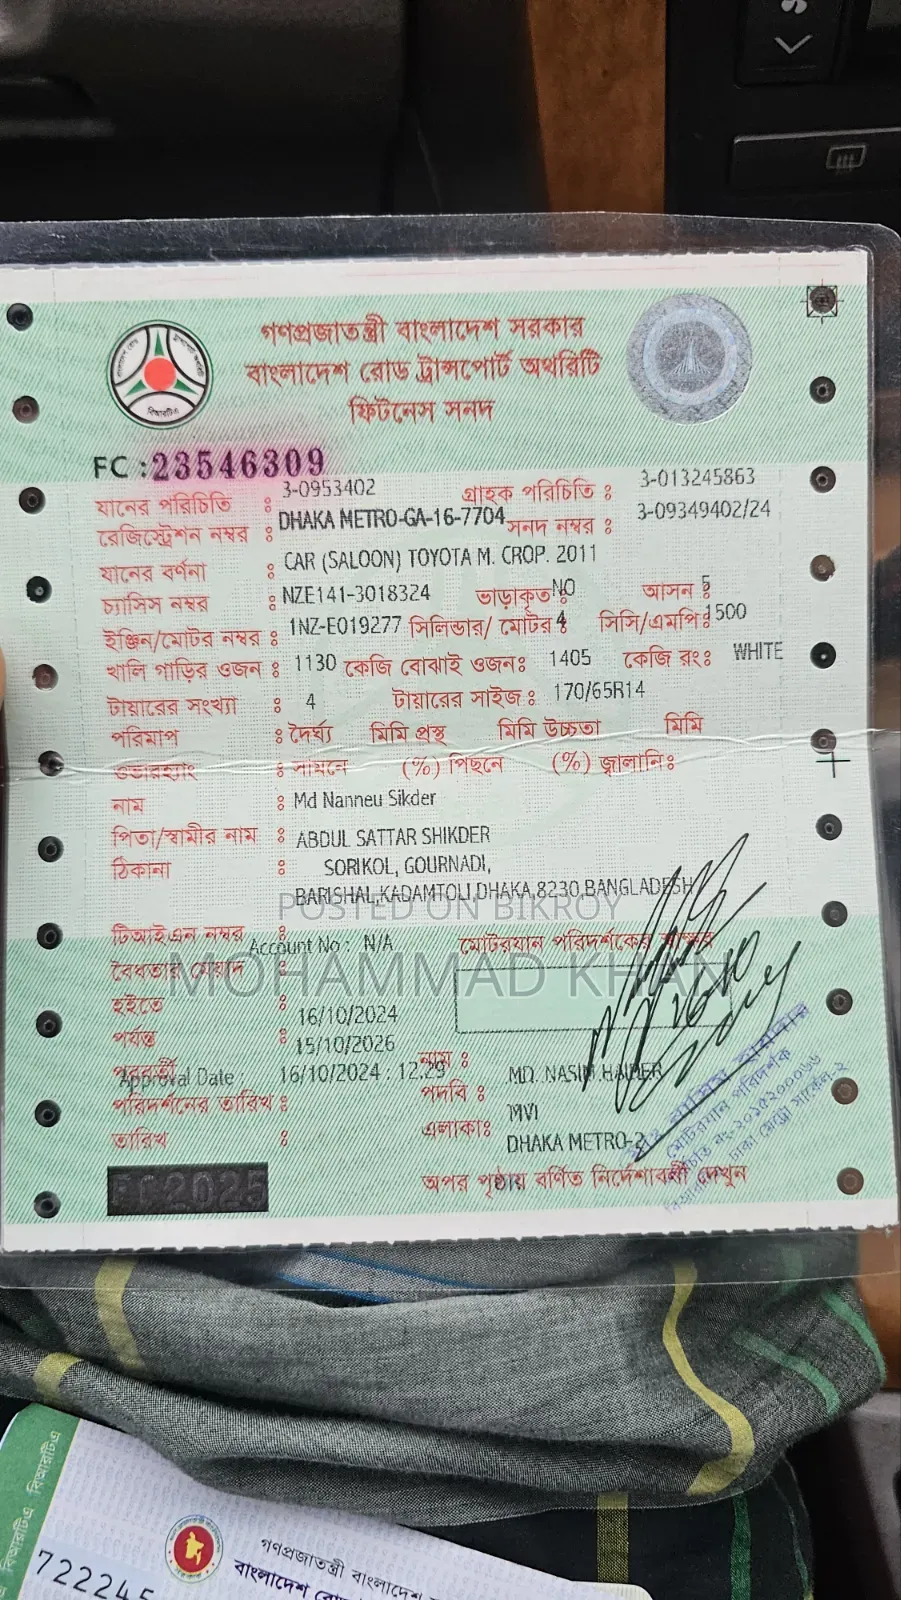 গণপ্রজাতন্ত্রী বাংলাদেশ সরকার
বাংলাদেশ রোড ট্রান্সপোর্ট অথরিটি
ফিটনেস সনদ
বিআরটিএ
FC :23546309
যানের পরিচিতি : 3-0953402 গ্রাহক পরিচিতি : 3-013245863
রেজিস্ট্রেশন নম্বর : DHAKA METRO-GA-16-7704 সনদ নম্বর : 3-09349402/24
যানের বর্ণনা : CAR (SALOON) TOYOTA M. CROP. 2011
চ্যাসিস নম্বর : NZE141-3018324 ভাড়াকৃত NO আসন : 5
ইঞ্জিন/মোটর নম্বর : 1NZ-E019277 সিলিন্ডার/ মোটর : 4 সিসি/এমপি : 1500
খালি গাড়ির ওজন : 1130 কেজি বোঝাই ওজন : 1405 কেজি রং : WHITE
টায়ারের সংখ্যা : 4 টায়ারের সাইজ : 170/65R14
পরিমাপ : দৈর্ঘ্য মিমি প্রস্থ মিমি উচ্চতা মিমি
ওভারহ্যাং : সামনে (%) পিছনে (%) জ্বালানি :
নাম : Md Nanneu Sikder
পিতা/স্বামীর নাম : ABDUL SATTAR SHIKDER
ঠিকানা : SORIKOL, GOURNADI,
BARISHAL,KADAMTOLI,DHAKA,8230,BANGLADESH
POSTED ON BIKROY
টিআইএন নম্বর Account No : N/A মোটরযান পরিদর্শকের স্বাক্ষর
বৈধতার মেয়াদ :
MOHAMMAD KHAN
হইতে : 16/10/2024
পর্যন্ত : 15/10/2026
পরবর্তী Approval Date : 16/10/2024 : 12.29 নাম : MD. NASIM HAIDER
পরিদর্শনের তারিখ : পদবি : MVI
তারিখ : এলাকা : DHAKA METRO-2
মোটরযান পরিদর্শক
FC2025
অপর পৃষ্ঠায় বর্ণিত নির্দেশাবলী দেখুন
বিআরটিএ বিআরটিএ
গণপ্রজাতন্ত্রী বাংলাদেশ
বাংলাদেশ রো
722245